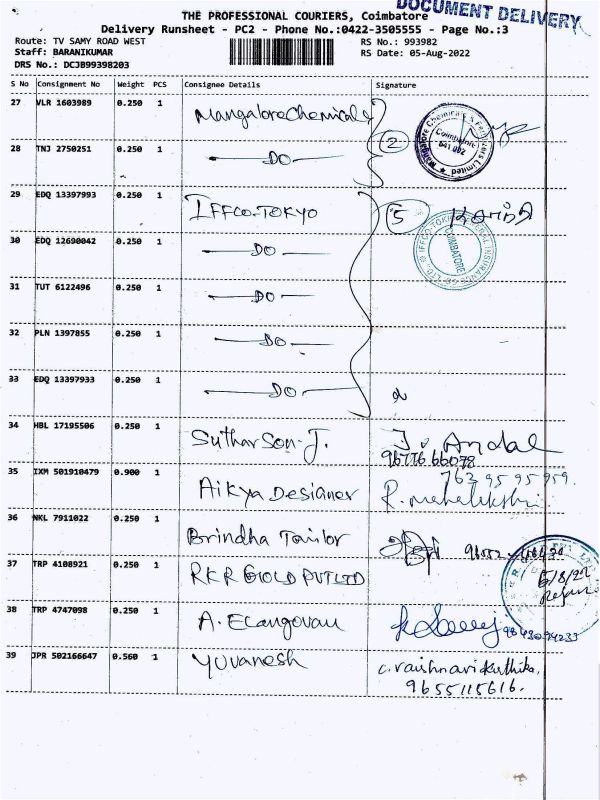 DOCUMENT DELIVERY
THE PROFESSIONAL COURIERS, Coimbatore
Delivery Runsheet - PC2 - Phone No.:0422-3505555 - Page No.:3
Route: TV SAMY ROAD WEST
RS No.: 993982
Staff: BARANIKUMAR
RS Date: 05-Aug-2022
DRS No.: DCJB99398203
S No Consignment No Weight PCS Consignee Details Signature
27 VLR 1603989 0.250 1 Mangalore Chemicals
28 TNJ 2750251 0.250 1 DO 2
Mangalore Chemicals & Fertilizers Limited
Coimbatore
641 002
29 EDQ 13397993 0.250 1 IFFCO-TOKYO 5
30 EDQ 12690042 0.250 1 DO
COIMBATORE
31 TUT 6122496 0.250 1 DO
32 PLN 1397855 0.250 1 DO
33 EDQ 13397933 0.250 1 DO
34 HBL 17195506 0.250 1 Sutharson. J. J. Andal
96776 66078
35 IXM 501910479 0.900 1 Aikya Designer 762 95 95 959.
R. mahalakshmi
36 NKL 7911022 0.250 1 Brindha Tailor
37 TRP 4108921 0.250 1 RKR GOLD PVT LTD 5/8/22
38 TRP 4747098 0.250 1 A. Elangovan
39 JPR 502166647 0.560 1 Yuvanesh C. vaishnavi Kruthika.
9655115616.